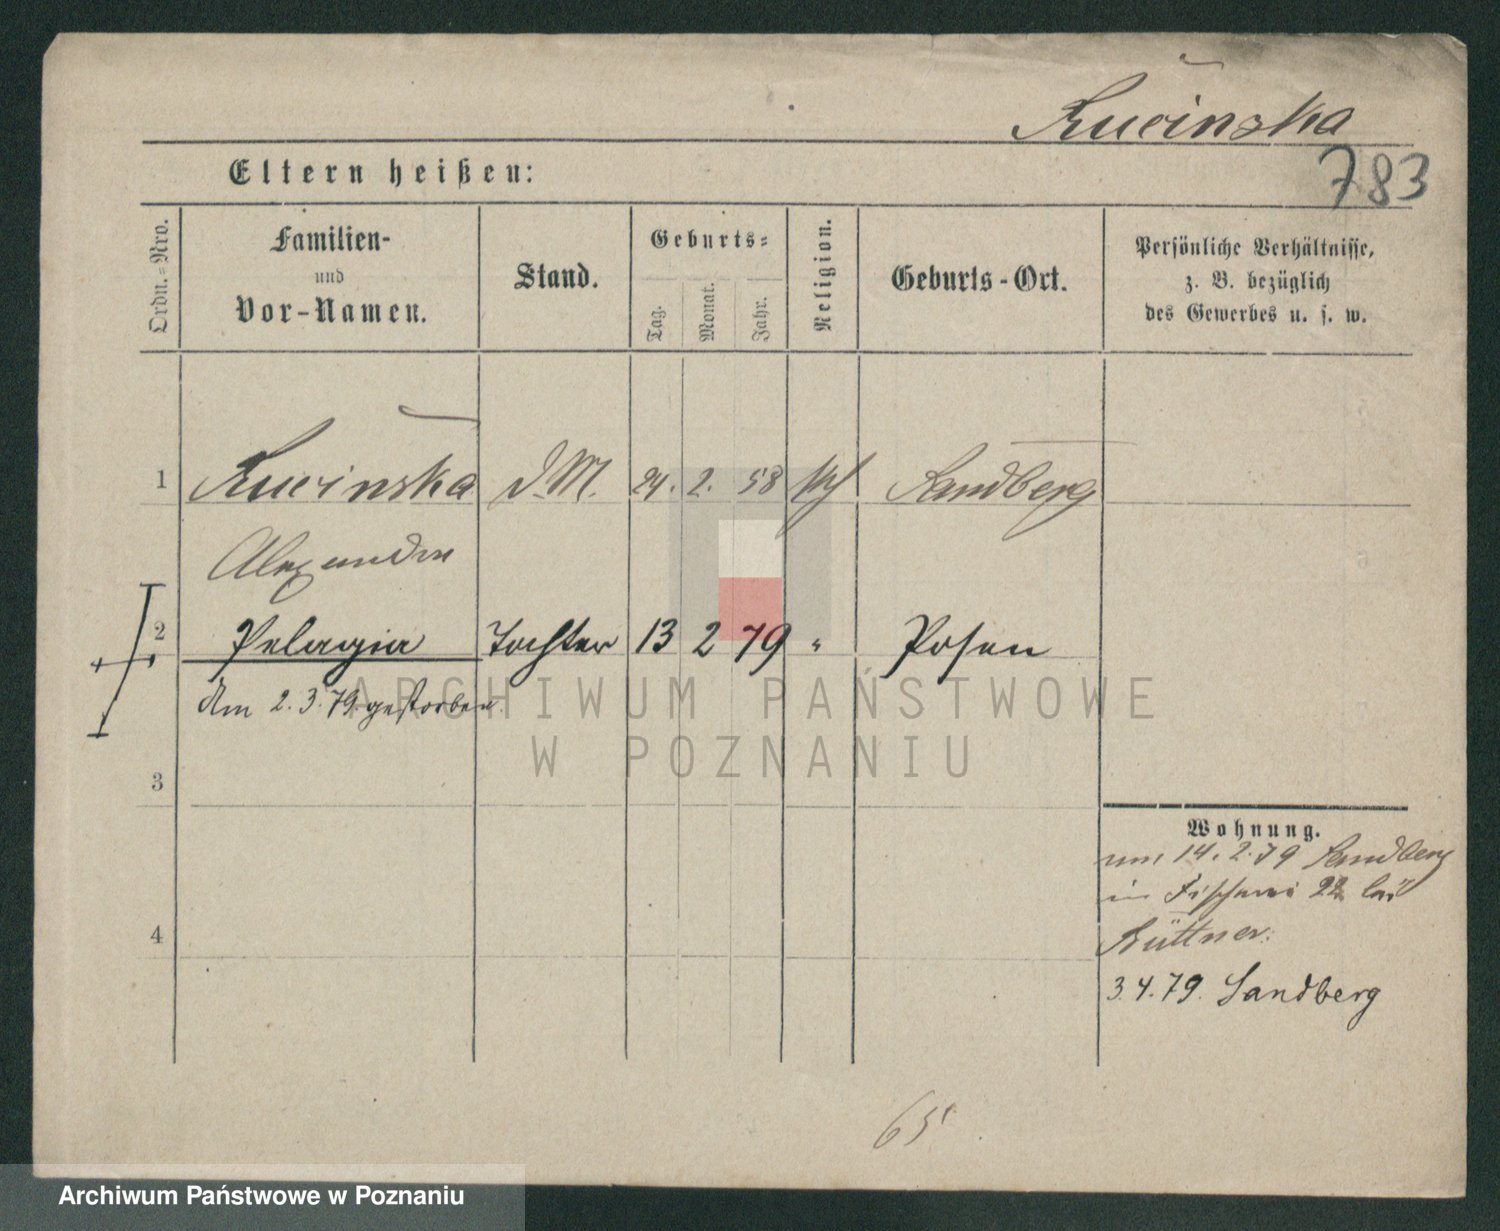 Rucinska
783
Eltern heißen:
Ordn.=Nro.
Familien-
und
Vor-Namen.
Stand.
Geburts-
Tag.
Monat.
Jahr.
Religion.
Geburts-Ort.
Persönliche Verhältnisse,
z. B. bezüglich
des Gewerbes u. s. w.
1 Rucinska D.M. 24. 2. 58 Sandberg
2 Pelagia Tochter 13 2 79 " Posen
Am 2.3.79. gestorben.
3
4
Wohnung.
14.2.79 Sandberg
in Fischerei 22 bei
Büttner.
3.4.79. Sandberg
65
ARCHIWUM PAŃSTWOWE
W POZNANIU
Archiwum Państwowe w Poznaniu